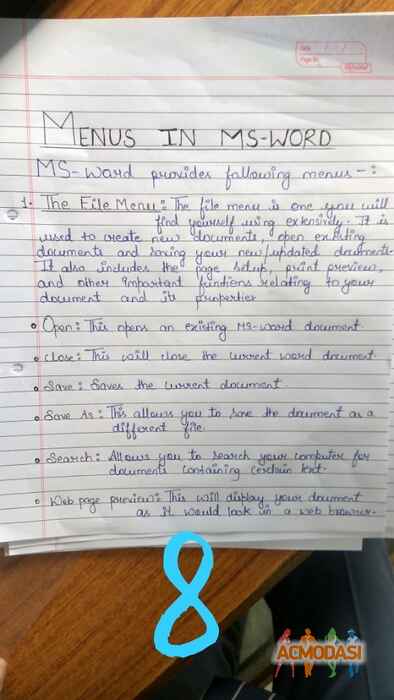 Date / /
Page No.
MENUS IN MS-WORD
MS-Word provides following menus -:
1. The File Menu : The file menu is one you will
find yourself using extensively. It is
used to create new documents, open existing
documents and saving your new/updated documents.
It also includes the page setup, print preview,
and other important functions relating to your
document and its properties
• Open : This opens an existing MS-word document
• Close : This will close the current word document
• Save : Saves the current document.
• Save As : This allows you to save the document as a
different file.
• Search : Allows you to search your computer for
documents containing certain text.
• Web page preview : This will display your document
as it would look in a web browser.
8
ACMODASI